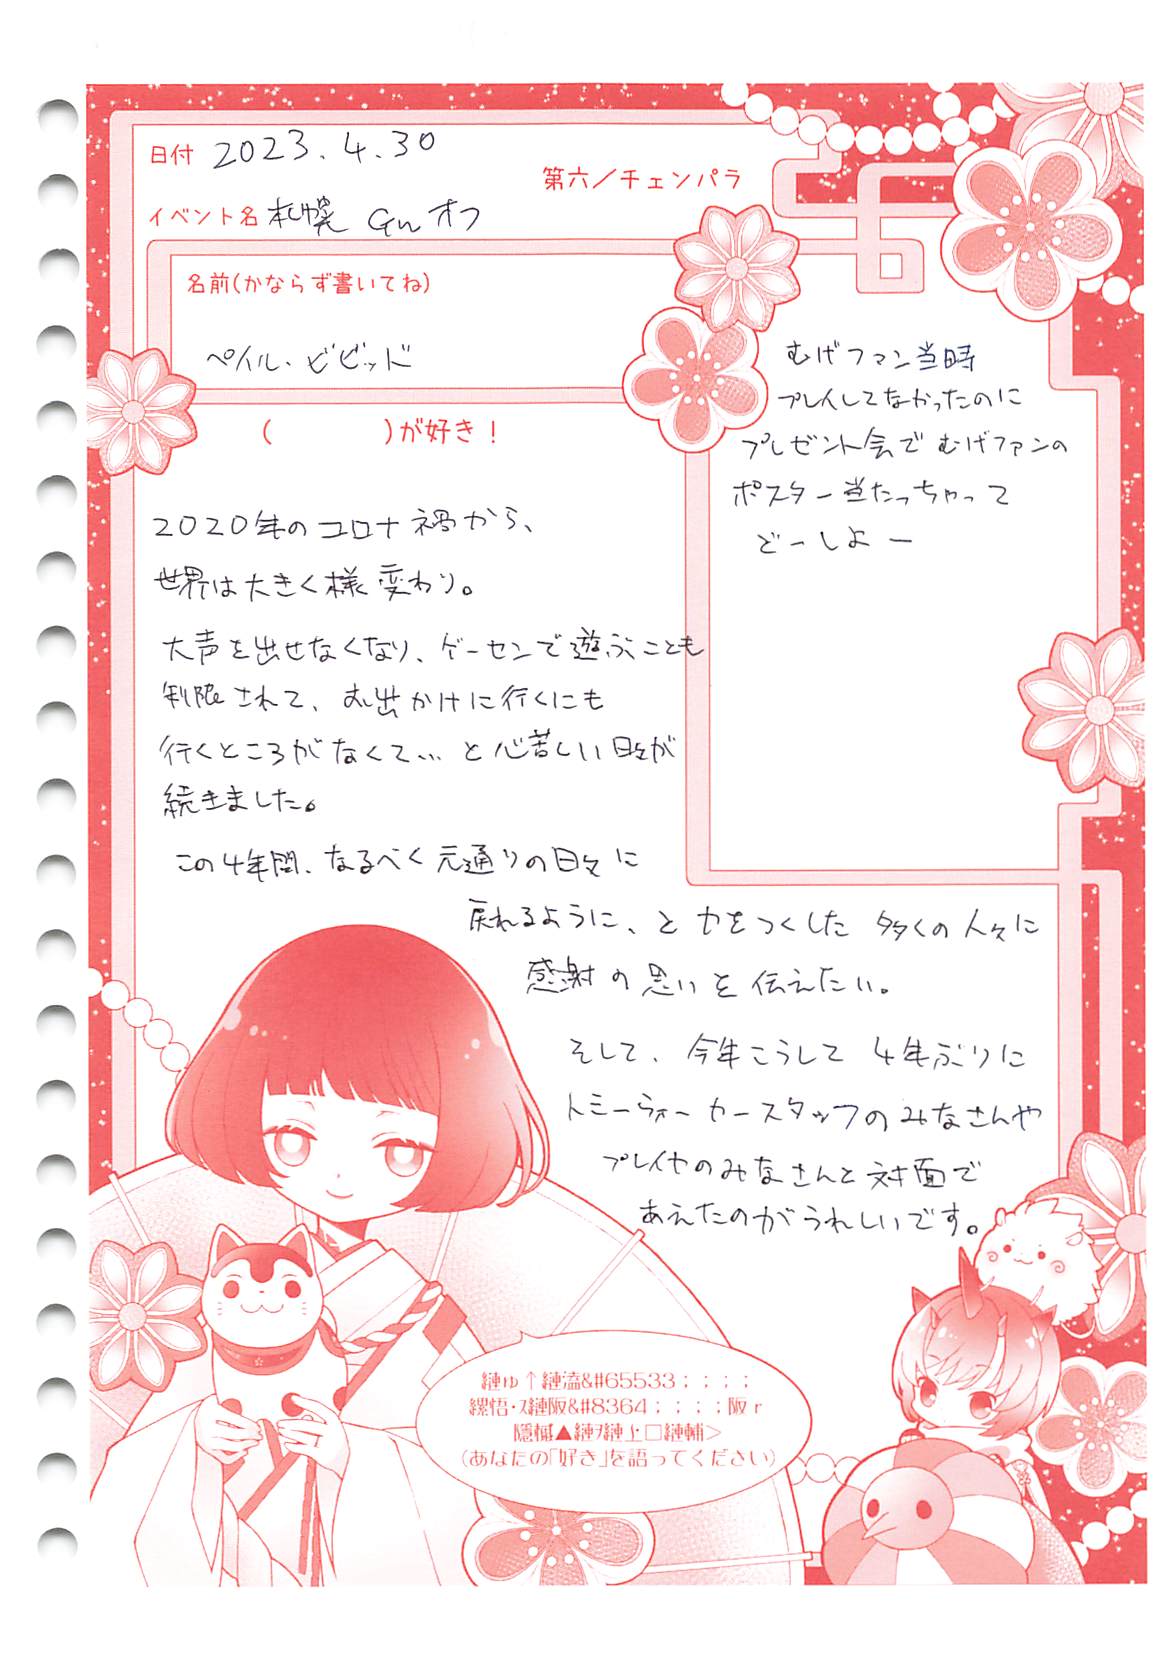 日付 2023.4.30
第六／チェンパラ
イベント名 札幌 Gu オフ
名前(かならず書いてね)
ペイル・ビビッド
(　　　　)が好き！
むげファン当時
プレイしてなかったのに
プレゼント会でむげファンの
ポスター当たっちゃって
どーしよー
2020年のコロナ禍から、
世界は大きく様変わり。
大声を出せなくなり、ゲーセンで遊ぶことも
制限されて、お出かけに行くにも
行くところがなくて… と心苦しい日々が
続きました。
この4年間、なるべく元通りの日々に
戻れるように、と力をつくした多くの人々に
感謝の思いを伝えたい。
そして、今年こうして4年ぶりに
トミーウォーカースタッフのみなさんや
プレイヤのみなさんと対面で
あえたのがうれしいです。
縺ゅ↑縺溘&#65533；；；；
縲悟･ｽ縺阪&#8364；；；；阪ｒ
隱槭▲縺ｦ縺上□縺輔>
(あなたの「好き」を語ってください)